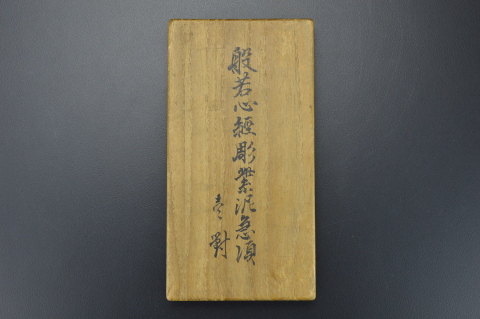 般若心經彫紫泥急須
壱對